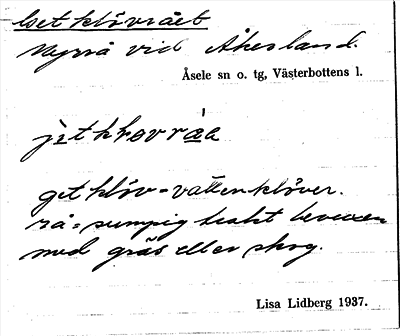 Getklövrået
Myrrå vid Åkerland.
Åsele sn o. tg, Västerbottens l.
getklöv = vattenklöver.
rå = sumpig trakt bevuxen
med gräs eller skog.
Lisa Lidberg 1937.